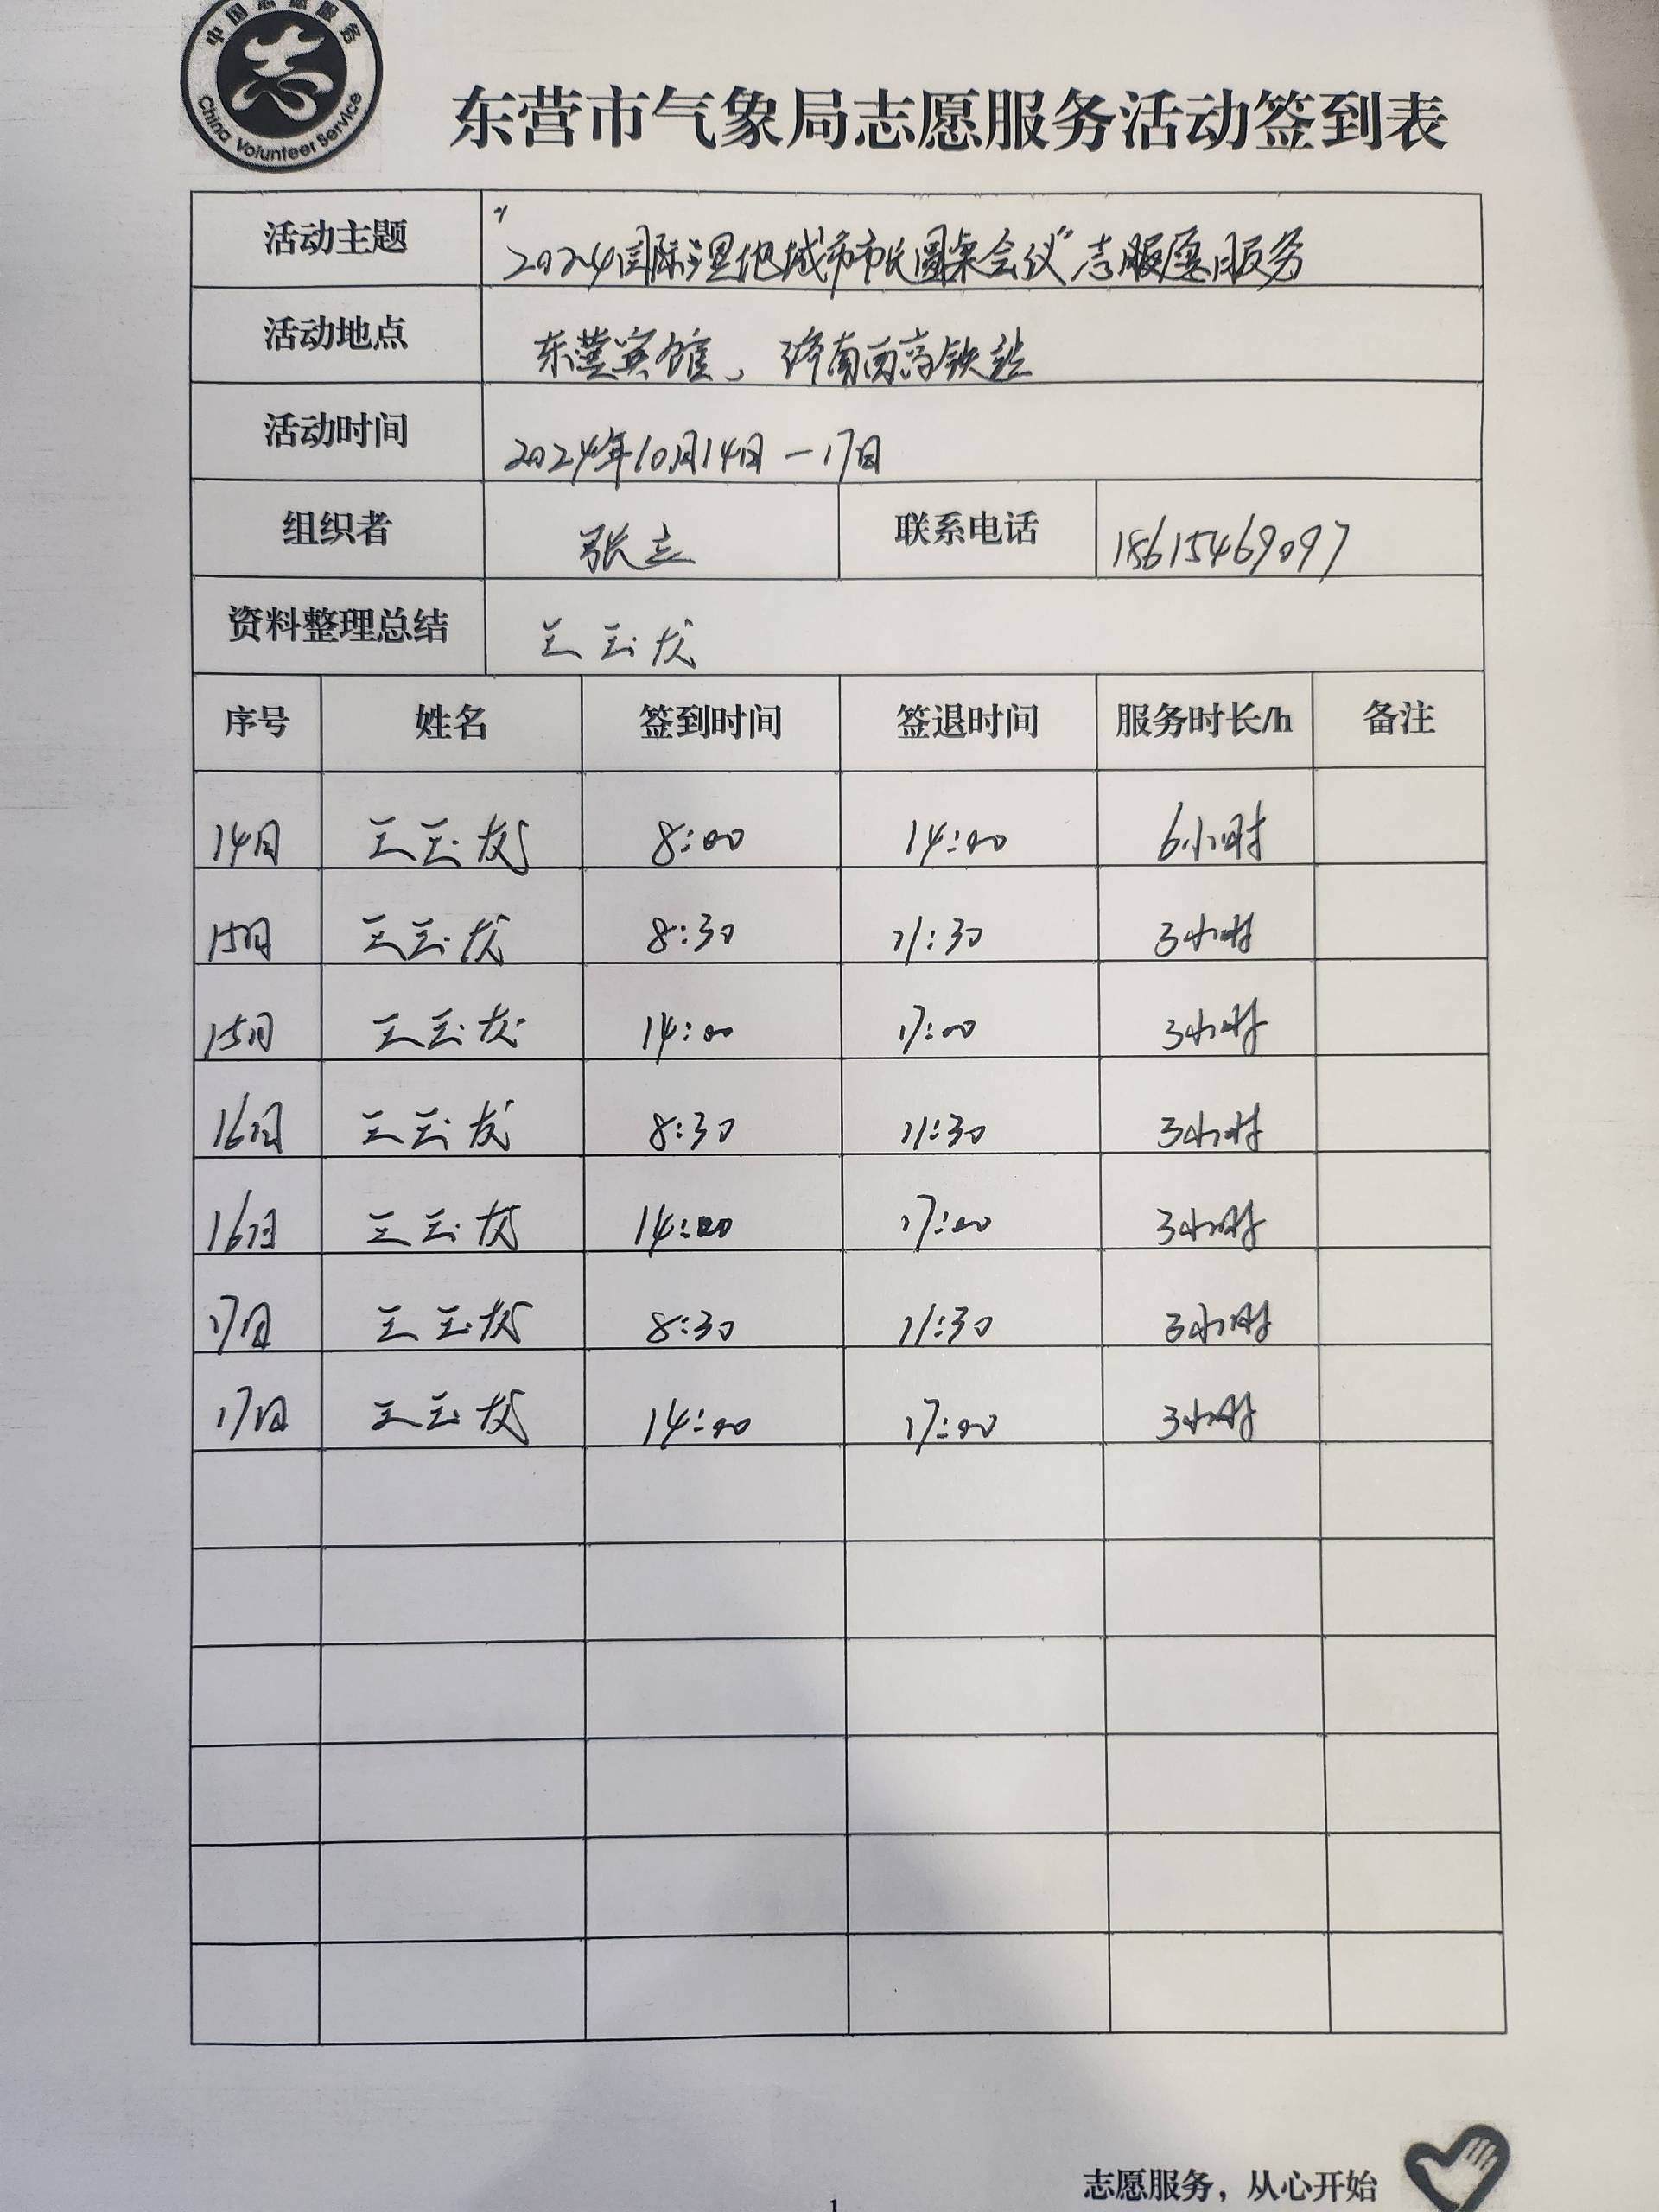 中国志愿服务
China Volunteer Service
东营市气象局志愿服务活动签到表
活动主题 “2024国际湿地城市市长圆桌会议”志服愿服务
活动地点 东营宾馆、济南西高铁站
活动时间 2024年10月14日—17日
组织者 张立 联系电话 15615469097
资料整理总结 王玉龙
序号 姓名 签到时间 签退时间 服务时长/h 备注
14日 王玉龙 8:00 14:00 6小时
15日 王玉龙 8:30 11:30 3小时
15日 王玉龙 14:00 17:00 3小时
16日 王玉龙 8:30 11:30 3小时
16日 王玉龙 14:00 17:00 3小时
17日 王玉龙 8:30 11:30 3小时
17日 王玉龙 14:00 17:00 3小时
志愿服务，从心开始
1